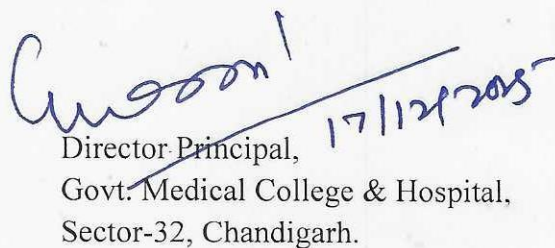 17/12/2025
Director Principal,
Govt. Medical College & Hospital,
Sector-32, Chandigarh.